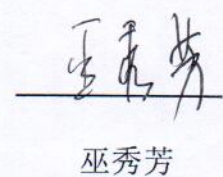 巫秀芳
巫秀芳